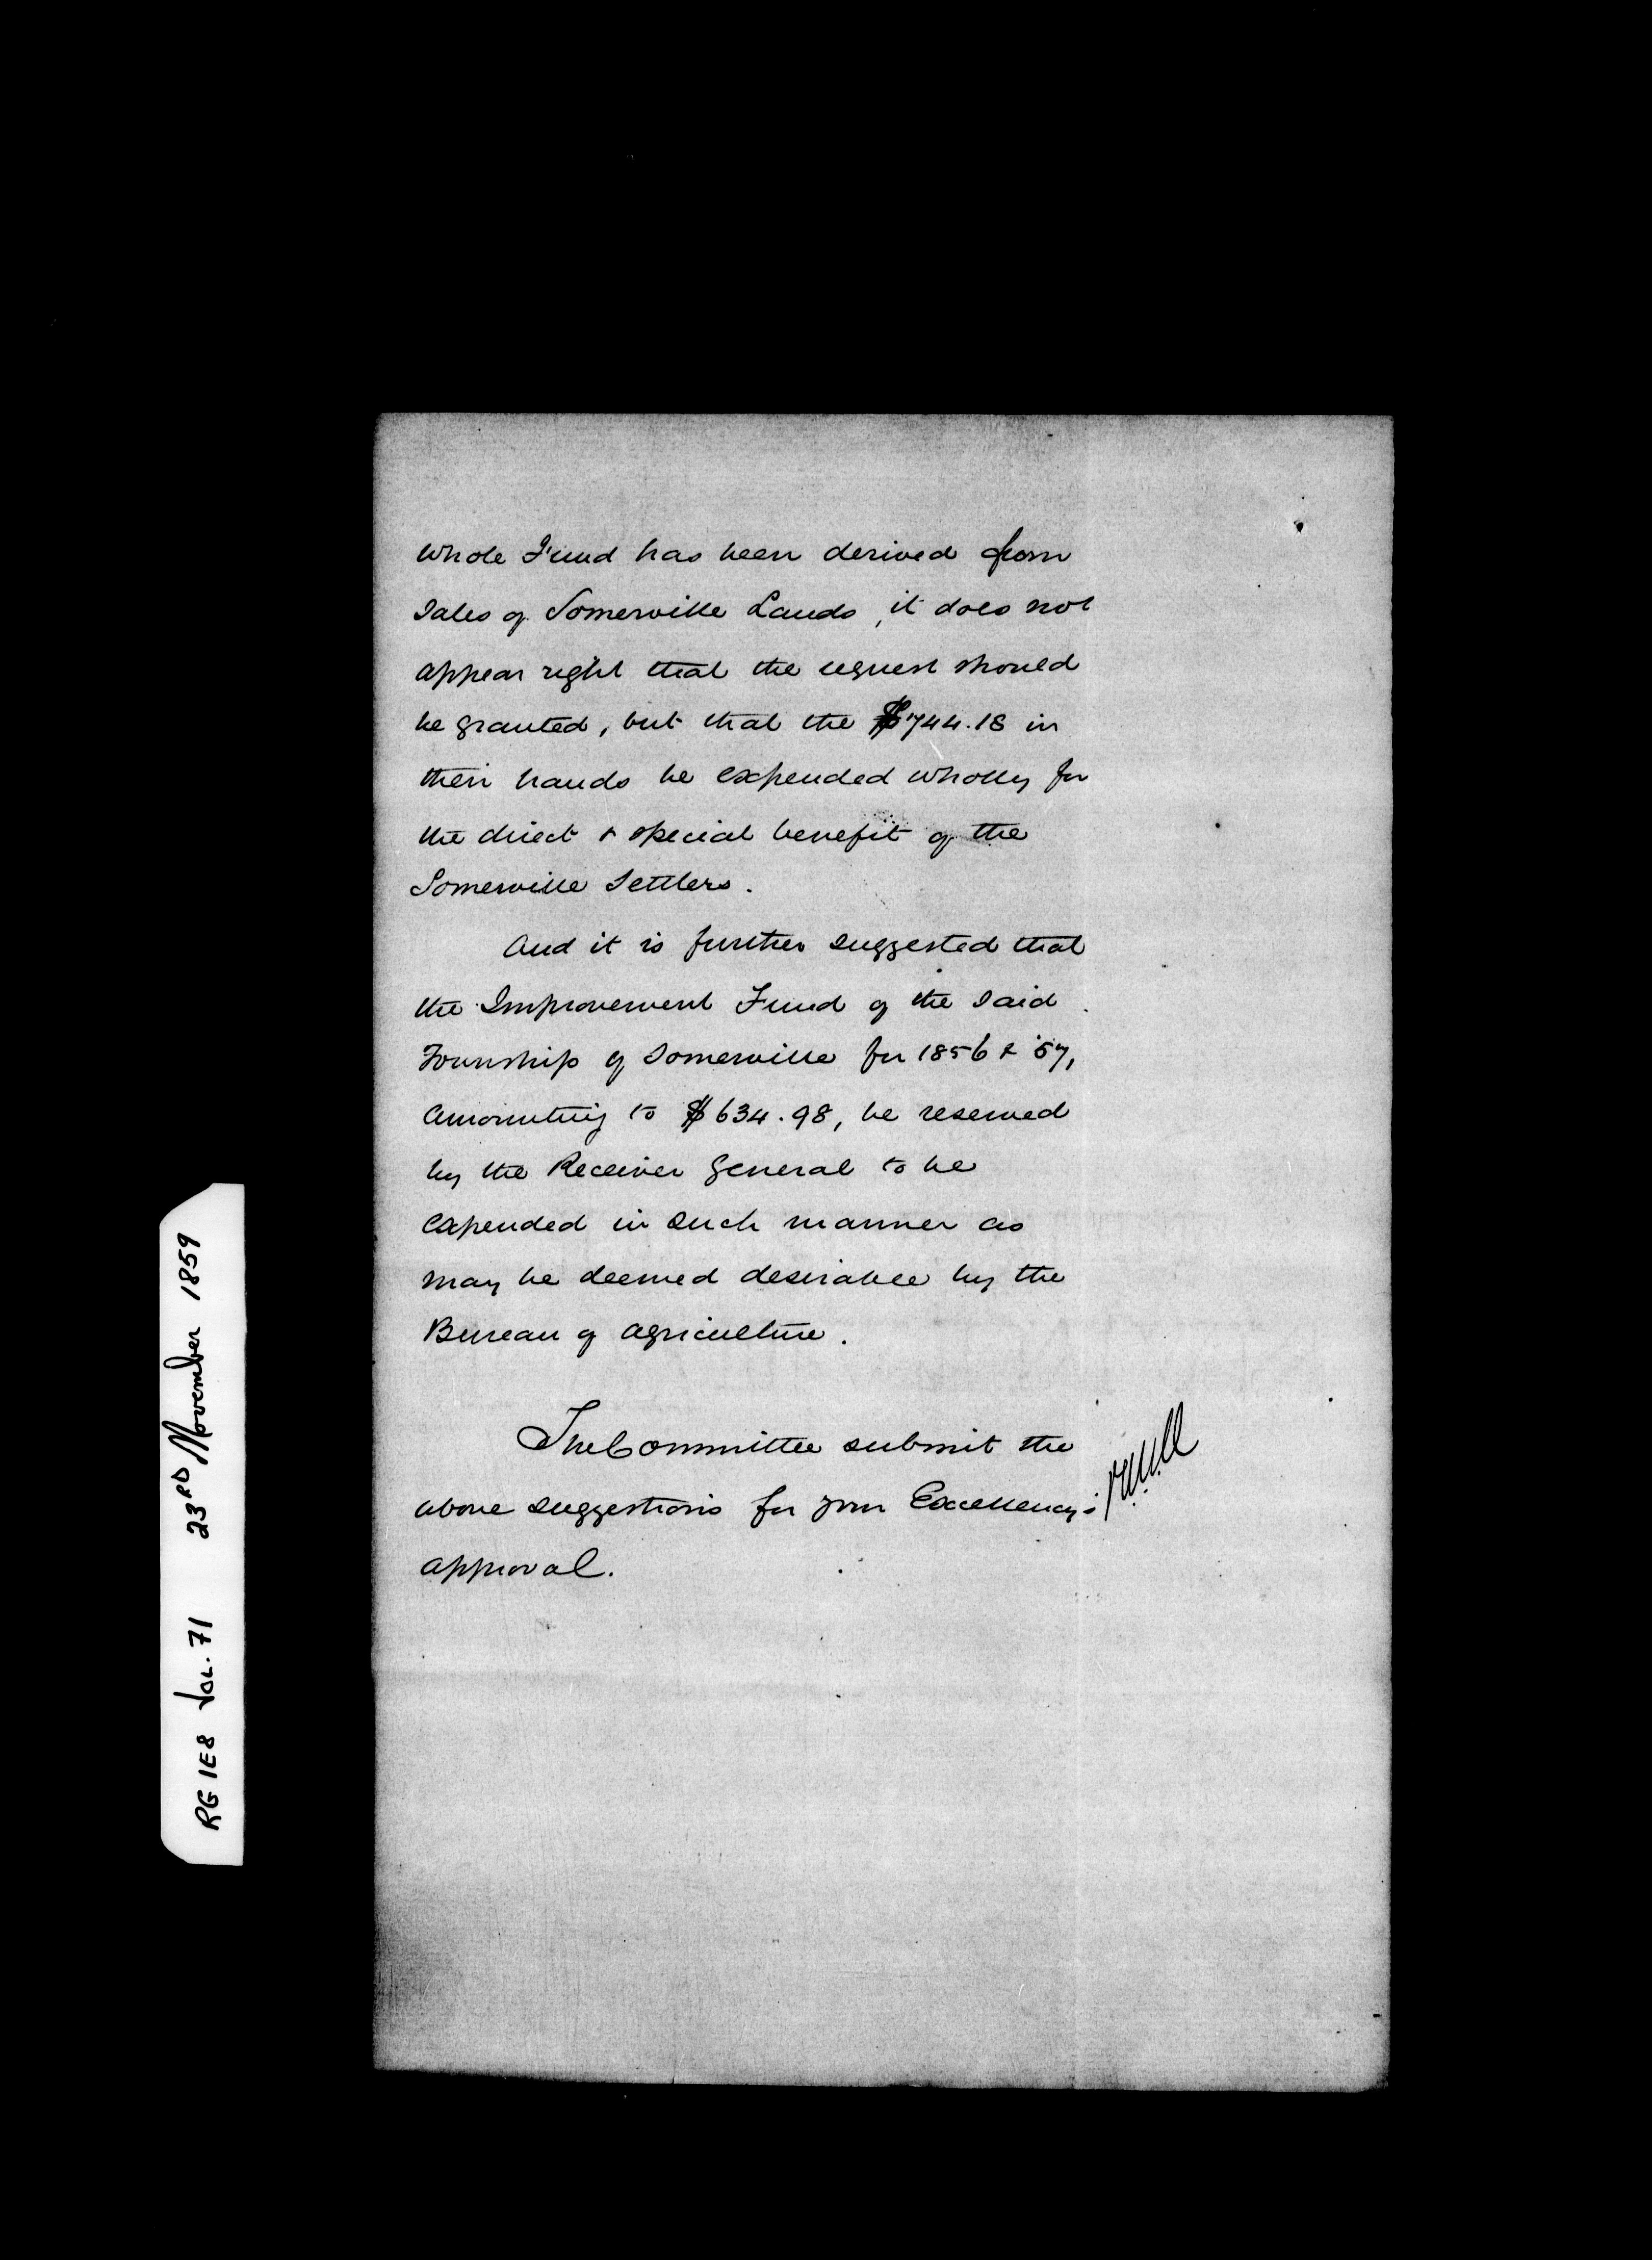 whole Fund has been derived from
Sales of Somerville Lands, it does not
appear right that the request should
be granted, but that the $744.18 in
their hands be expended wholly for
the direct & special benefit of the
Somerville Settlers.
And it is further suggested that
the Improvement Fund of the said
Township of Somerville for 1856 & '57,
amounting to $634.98, be reserved
by the Receiver General to be
expended in such manner as
may be deemed desirable by the
Bureau of Agriculture.
The Committee submit the
above suggestions for your Excellency's
approval.
RG 1E8 Vol. 71 23RD November 1859